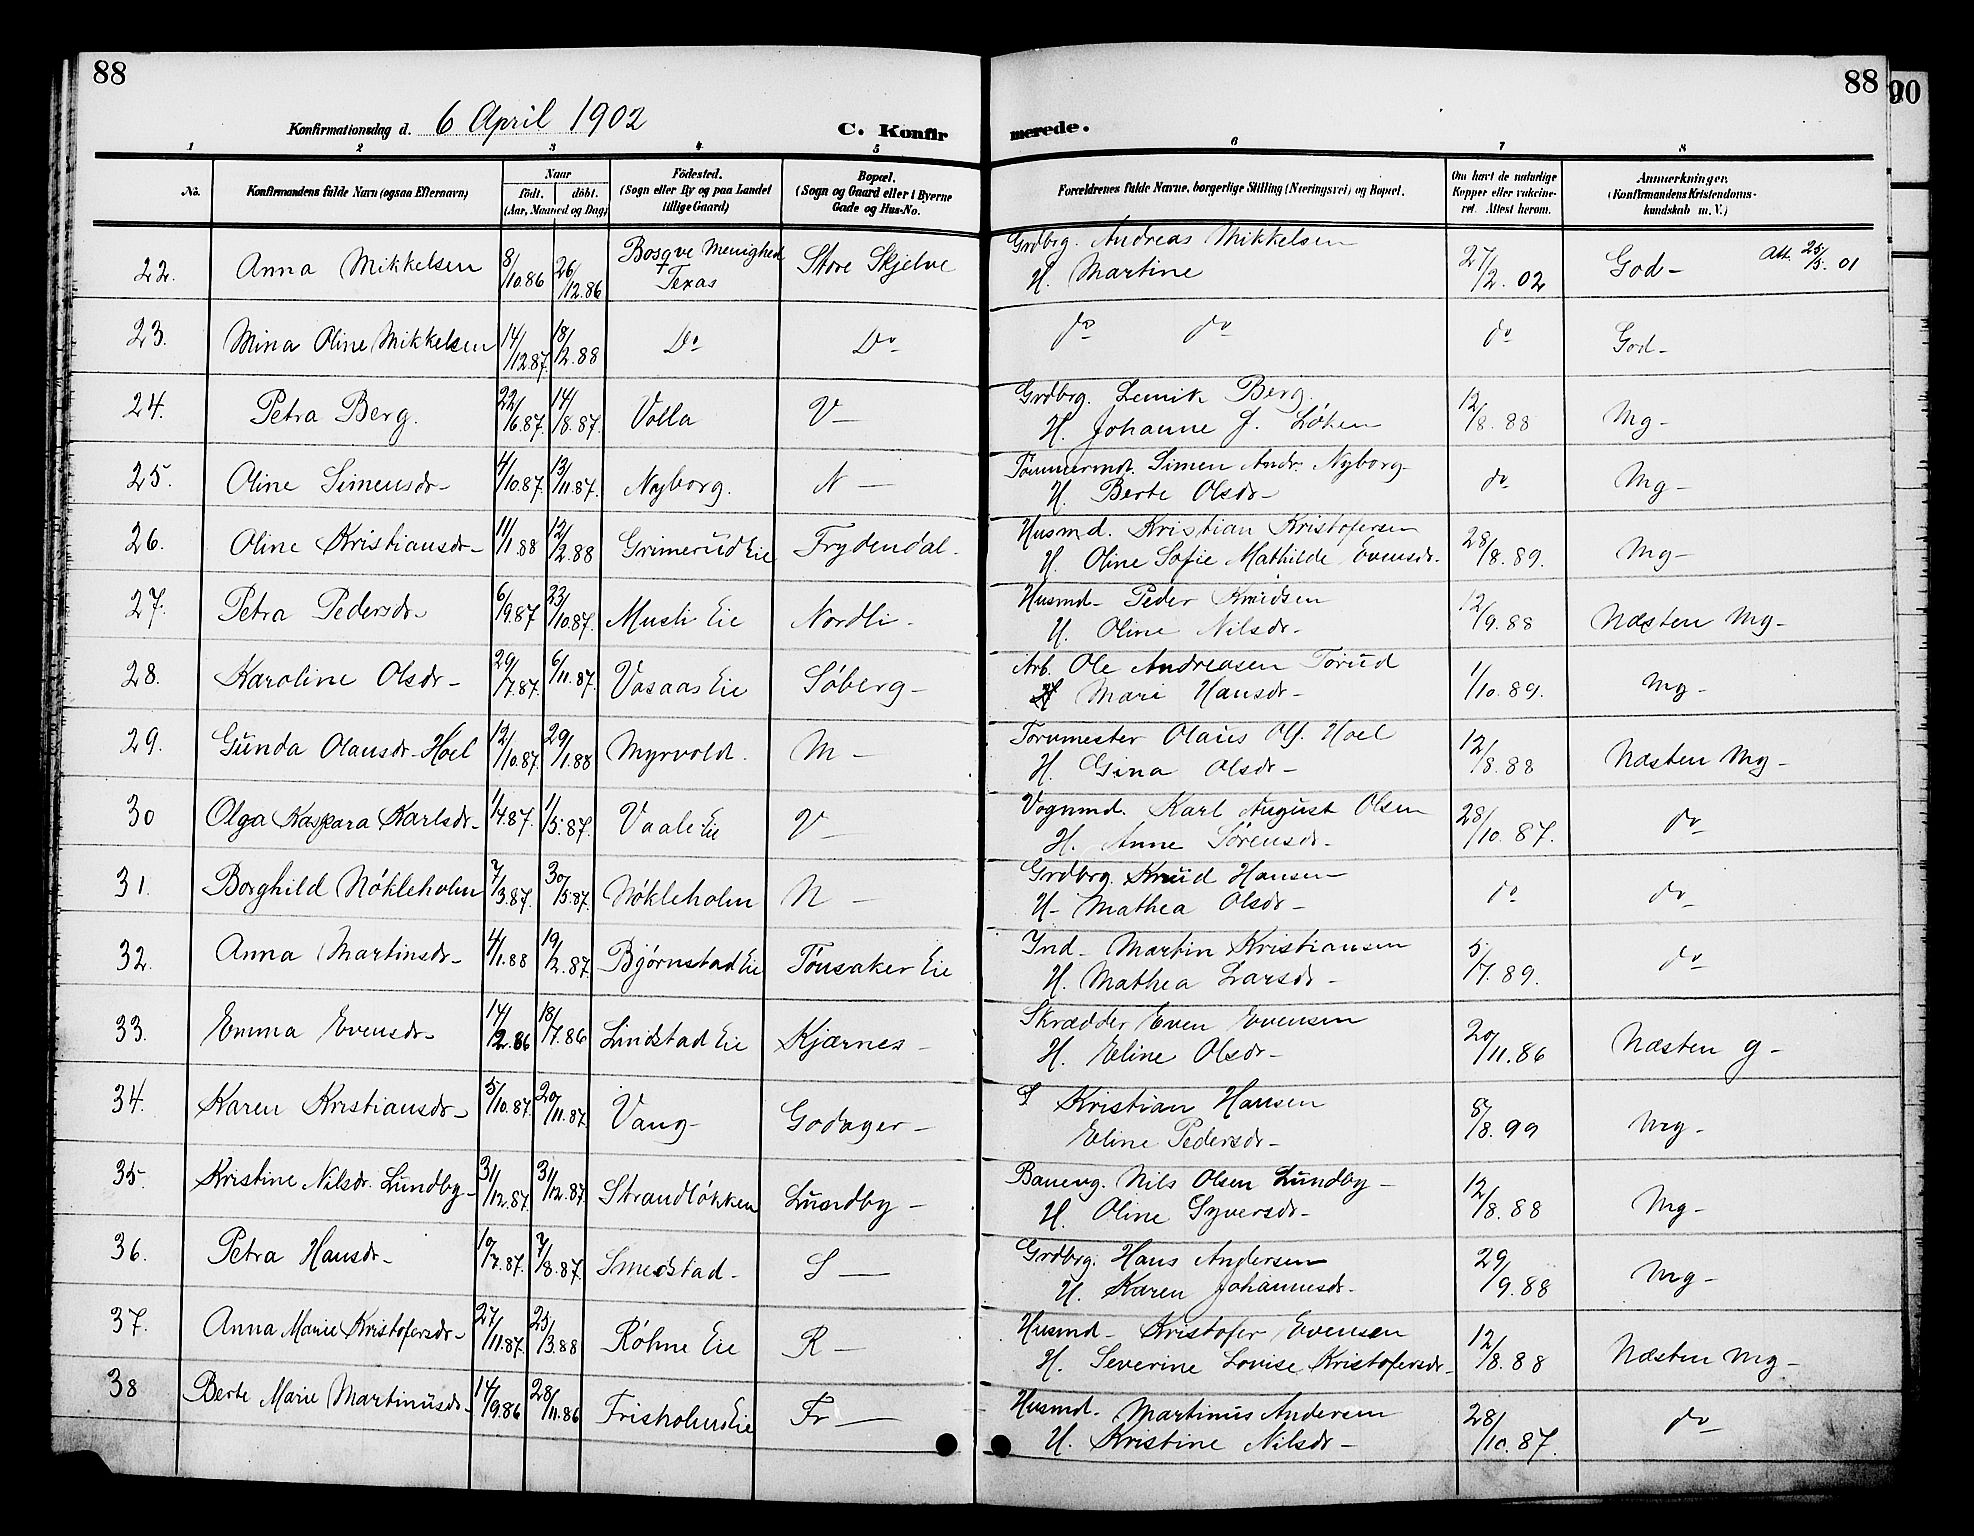 88
88
90
Konfirmationsdag d. 6 April 1902
C. Konfirmerede.
1 2 3 4 5 6 7 8
No. Konfirmandens fulde Navn (ogsaa Efternavn) Naar født. døbt. (Aar, Maaned og Dag) Fødested. (Sogn eller By og paa Landet tillige Gaard) Bopæl. (Sogn og Gaard eller i Byerne Gade og Hus-No. Forældrenes fulde Navne, borgerlige Stilling (Næringsvei) og Bopæl. Om havt de naturlige Kopper eller vakcineret. Attest herom. Anmærkninger. (Konfirmandens Kristendomskundskab m. V.)
22. Anna Mikkelsen 8/10.86 26/12.86 Bosqve Menighed Texas Store Skjelve Grdbrg. Andreas Mikkelsen H. Martine 27/2.02 God- Att. 25/5.01
23. Mina Oline Mikkelsen 14/12.87. 18/2.88 Do Do do do do God-
24. Petra Berg. 22/6.87. 14/8.87. Volla V- Grdbrg. Lemik Berg. H. Johanne J. Løken 12/8.88 Mg-
25. Oline Simensdr- 4/10.87. 13/11.87. Nyborg. N- Tømmermd. Simen Andr. Nyborg- H. Berte Olsdr- do Mg-
26. Oline Kristiansdr- 11/1.88 12/2.88 Grimerud Eie Frydendal. Husmd. Kristian Kristofersen H. Oline Sofie Mathilde Evensdr. 28/8.89. Mg-
27. Petra Pedersdr- 6/9.87 23/10.87. Musli Eie Nordli- Husmd- Peder Knudsen H. Oline Nilsdr- 12/9.88 Næsten Mg-
28. Karoline Olsdr- 29/7.87. 6/11.87. Vasaas Eie Søberg- Arb. Ole Andreasen Torud H Mari Hansdr- 1/10.89. Mg-
29. Gunda Olausdr. Hoel 12/10.87. 29/1.88 Myrvold. M- Torvmester Olaus Ols. Hoel H. Gina Olsdr- 12/8.88 Næsten Mg-
30 Olga Kaspara Karlsdr- 1/4.87. 1/5.87. Vaali Eie V- Vognmd. Karl August Olsen H. Anne Sørensdr- 28/10.87. do
31. Borghild Nøkleholm 7/3.87. 30/5.87. Nøkleholm N- Grdbrg. Knud Hansen- H- Mathea Olsdr- do do
32. Anna Martinsdr- 4/1.88 19/2.87. Bjørnstad Eie Tønsaker Eie Ind- Martin Kristiansen H. Mathea Larsdr- 5/7.89. do
33. Emma Evensdr- 14/2.86 18/7.86 Lindstad Eie Kjærnes- Skrædder Even Evensen H. Eline Olsdr- 20/11.86 Næsten g-
34. Karen Kristiansdr- 5/10.87. 20/11.87. Vang- Godager- Kristian Hansen Eline Pedersdr- 8/8.99 Mg-
35. Kristine Nilsdr. Lundby- 31/12.87. 31/12.87. Strandløkken Lundby- Banevg. Nils Olsen Lundby- H. Oline Syversdr- 12/8.88 Mg-
36. Petra Hansdr- 10/7.87. 7/8.87. Smedstad- S- Grdbrg. Hans Andersen H. Karen Johannesdr- 29/9.88 Mg-
37. Anna Marie Kristofersdr- 27/11.87. 25/3.88 Røhne Eie R- Husmd- Kristofer Evensen H. Severine Lovise Kristofersdr- 12/8.88 Næsten Mg-
38 Berte Marie Martinusdr- 14/9.86 28/11.86 Frisholm Eie Fr- Husmd. Martinus Andersen H. Kristine Nilsdr- 28/10.87. do